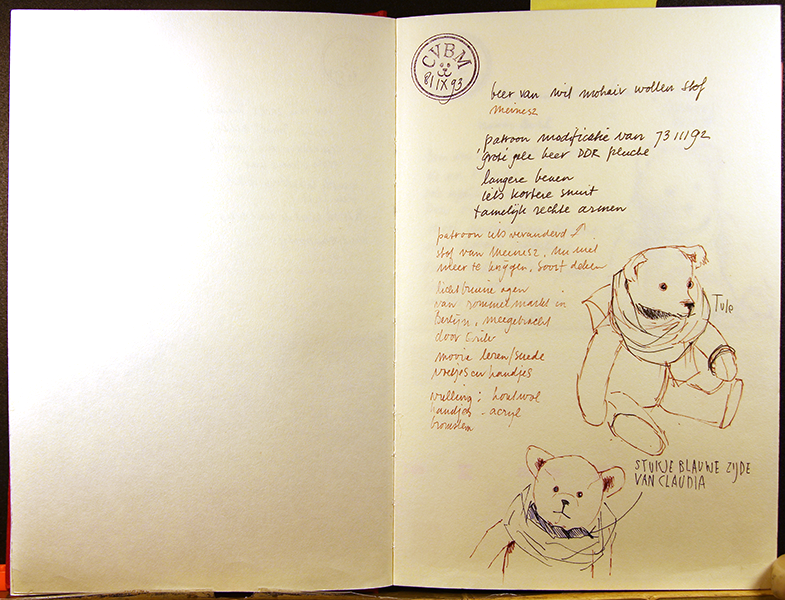 CVBM
8/IX 93
beer van wil mohair wollen stof
meinesz
patroon modificatie van 73 III 92
'grote' gele beer DDR pluche
langere benen
iets kortere snuit
tamelijk rechte armen
patroon iets veranderd
stof van meinesz, nu niet
meer te krijgen, soort deken
licht bruine ogen
van rommelmarkt in
Berlijn, meegebracht
door
mooie leren/suede
voetjes en handjes
vulling: houtwol
handjes - acryl
bromstem
Tule
STUKJE BLAUWE ZIJDE
VAN CLAUDIA